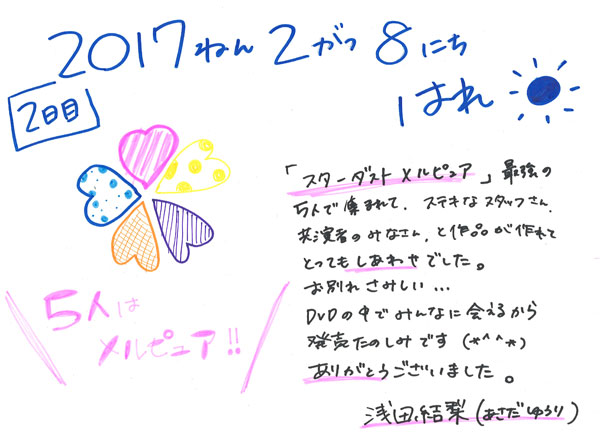 2017ねん2がつ8にち
はれ
2日目
「スターダスト メルピュア」最強の
5人で集まれて、ステキなスタッフさん、
共演者のみなさん、と作品が作れて
とってもしあわせでした。
お別れさみしい…
DVDの中でみんなに会えるから
発売たのしみです (*^^*)
ありがとうございました。
浅田結梨(あさだゆうり)
5人は
メルピュア!!